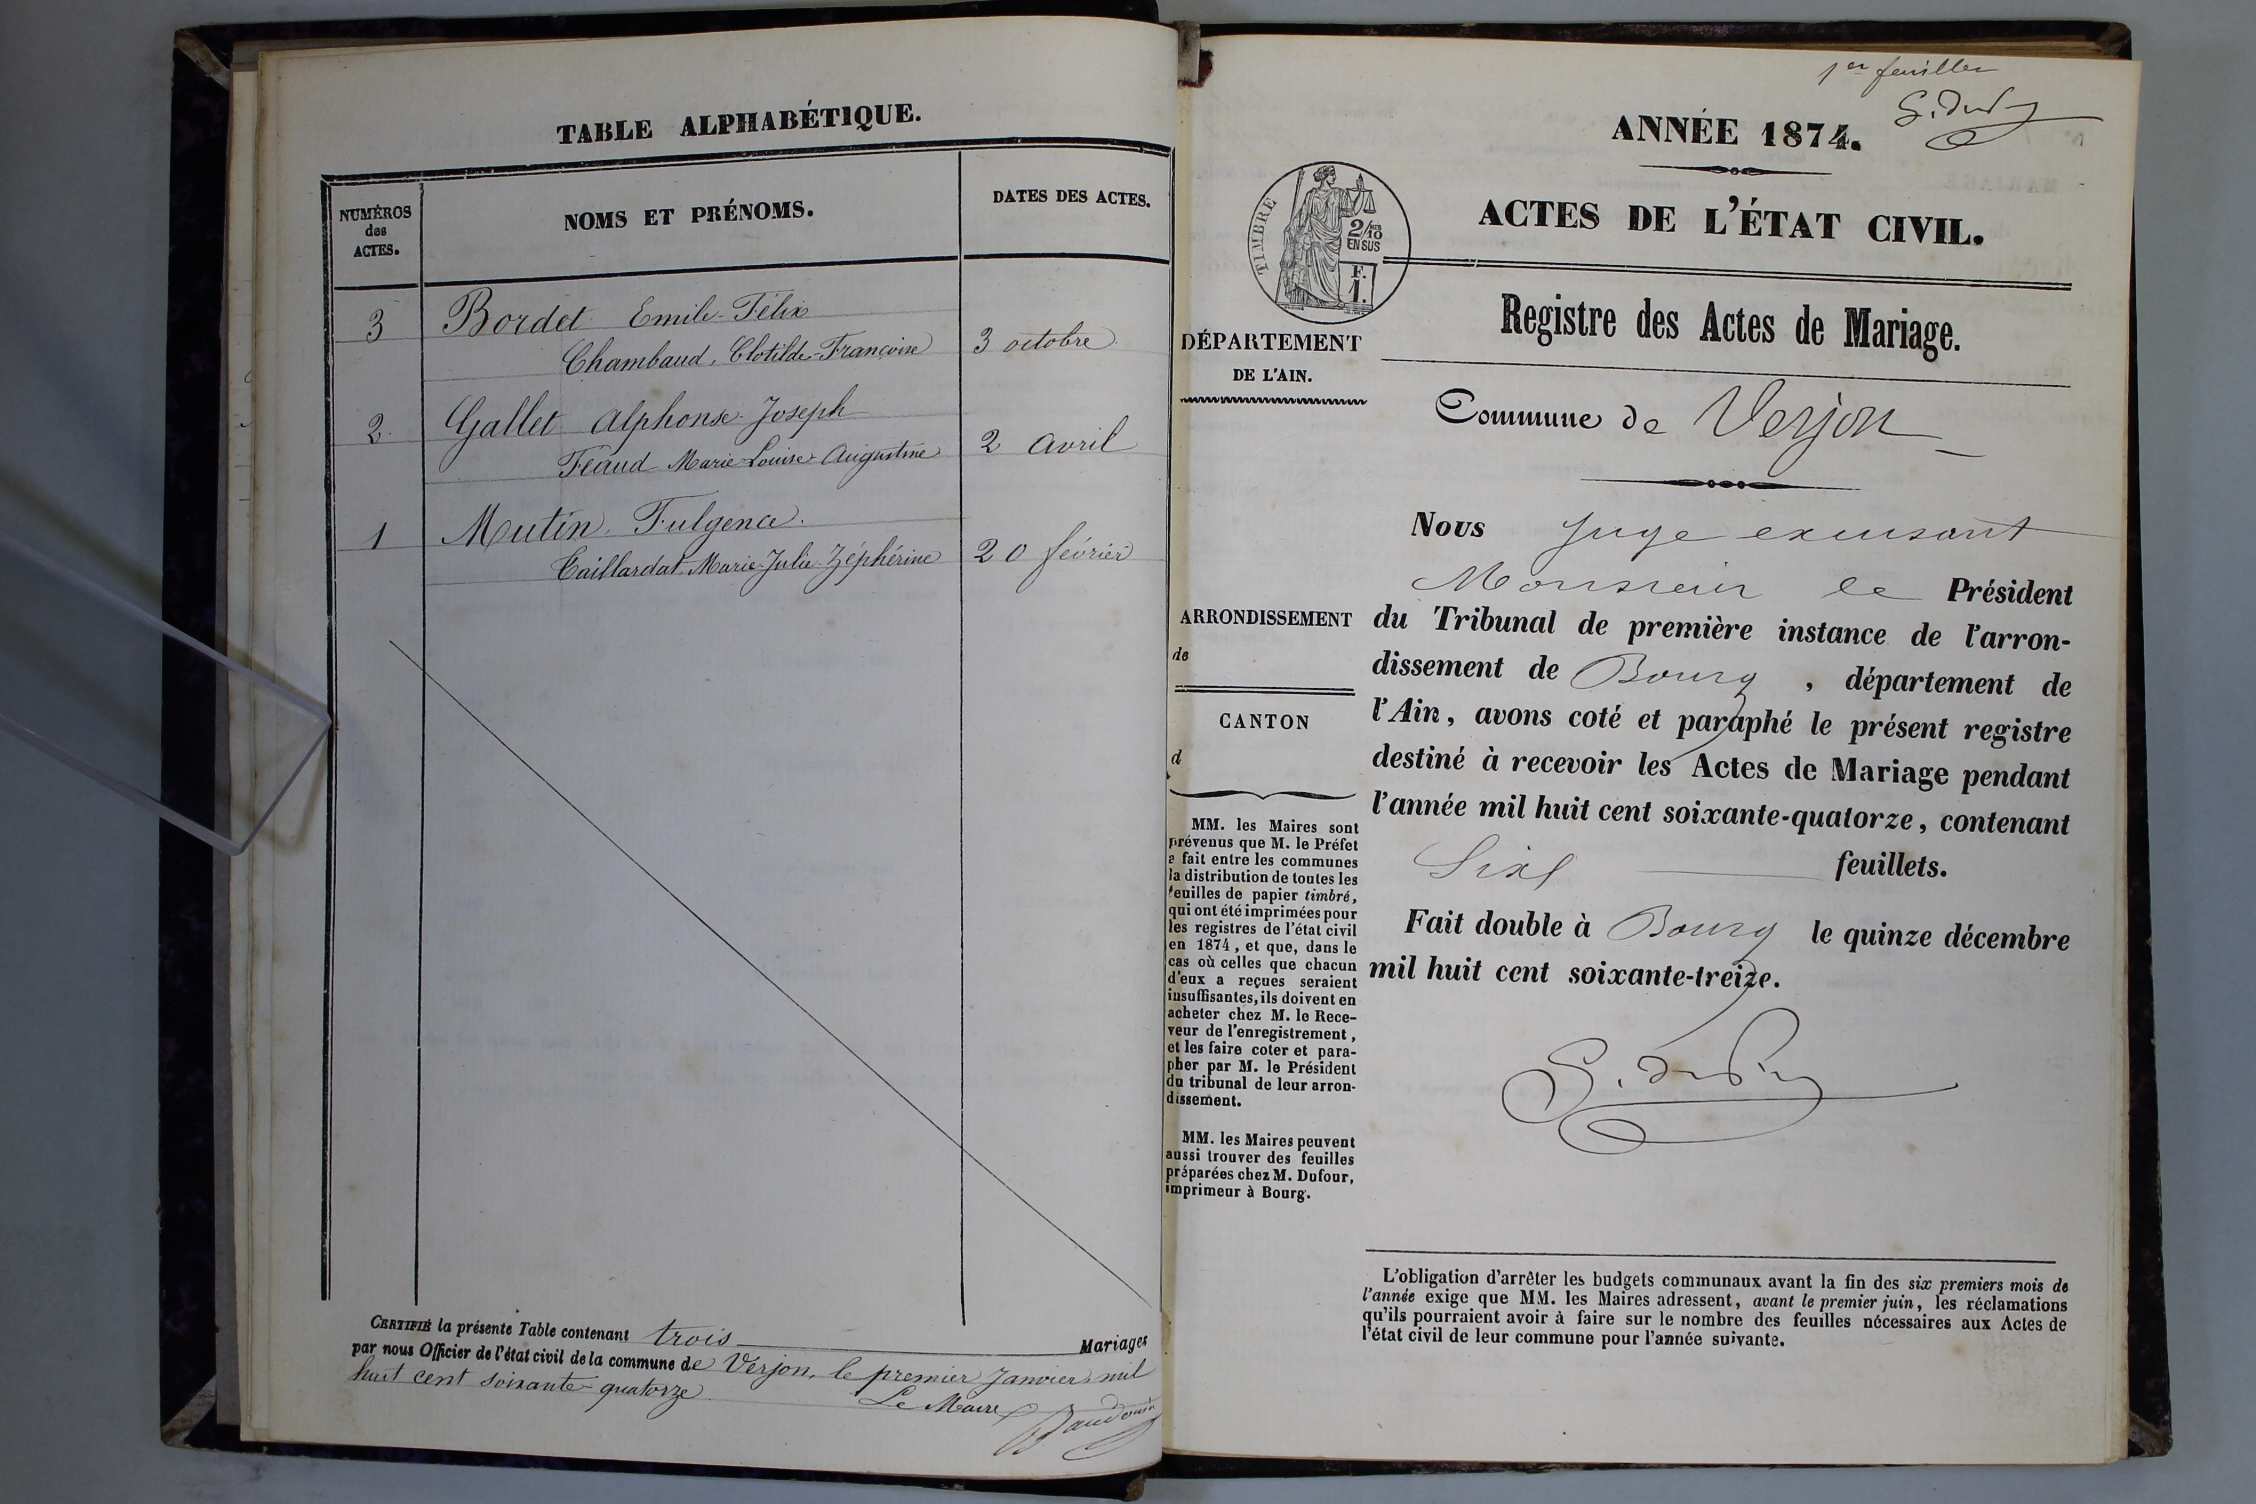 TABLE ALPHABÉTIQUE.
NUMÉROS
des
ACTES.
NOMS ET PRÉNOMS.
DATES DES ACTES.
3 Bordet Emile-Félix
Chambaud, Clotilde-Françoise 3 octobre
2 Gallet Alphonse-Joseph
Féaud Marie-Louise-Augustine 2 avril
1 Mutin, Fulgence.
Caillardat Marie-Julie-Zéphérine 20 février
CERTIFIÉ la présente Table contenant trois Mariages
par nous Officier de l'état civil de la commune de Verjon, le premier Janvier mil
huit cent soixante-quatorze
Le Maire
Baudouin
1er feuillet
ANNÉE 1874.
ACTES DE L'ÉTAT CIVIL.
TIMBRE
2/10
EN SUS
F.
1.
Registre des Actes de Mariage.
DÉPARTEMENT
DE L'AIN.
Commune de Verjon
Nous Juge excusant
Monsieur le Président
ARRONDISSEMENT
de
CANTON
d
du Tribunal de première instance de l'arron-
dissement de Bourg, département de
l'Ain, avons coté et paraphé le présent registre
destiné à recevoir les Actes de Mariage pendant
l'année mil huit cent soixante-quatorze, contenant
Six feuillets.
Fait double à Bourg le quinze décembre
mil huit cent soixante-treize.
MM. les Maires sont
prévenus que M. le Préfet
a fait entre les communes
la distribution de toutes les
feuilles de papier timbré,
qui ont été imprimées pour
les registres de l'état civil
en 1874, et que, dans le
cas où celles que chacun
d'eux a reçues seraient
insuffisantes, ils doivent en
acheter chez M. le Rece-
veur de l'enregistrement,
et les faire coter et para-
pher par M. le Président
du tribunal de leur arron-
dissement.
MM. les Maires peuvent
aussi trouver des feuilles
préparées chez M. Dufour,
imprimeur à Bourg.
L'obligation d'arrêter les budgets communaux avant la fin des six premiers mois de
l'année exige que MM. les Maires adressent, avant le premier juin, les réclamations
qu'ils pourraient avoir à faire sur le nombre des feuilles nécessaires aux Actes de
l'état civil de leur commune pour l'année suivante.